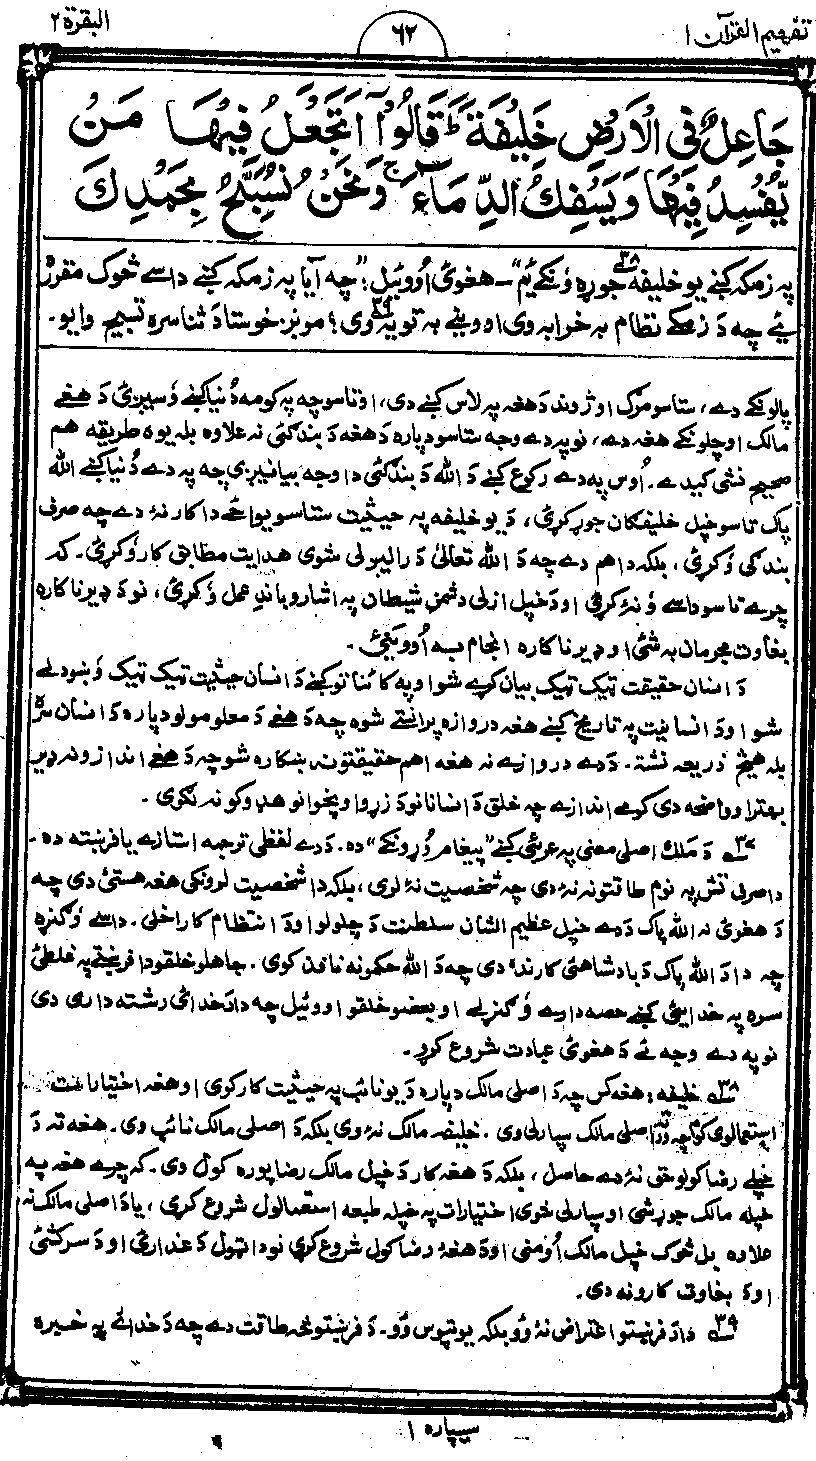 تفہیم القرآن ۱
۶۲
البقرة ۲
جَاعِلٌ فِى الْاَرْضِ خَلِيْفَةً ؕ قَالُوْۤا اَتَجْعَلُ فِيْهَا مَنْ
يُّفْسِدُ فِيْهَا وَيَسْفِكُ الدِّمَآءَ ۚ وَنَحْنُ نُسَبِّحُ بِحَمْدِكَ
په زمکه کښے يو خليفه ۳۸ جوړوونکے يم“ ــ هغوئ اُووئيل: ”چه آيا په زمکه کښے داسے څوک مقرر
يے چه دَ زمکے نظام به خرابه وى او وينے به تويه وى ۳۹؛ مونږ خو ستا دَ ثنا سره تسبيح وايو.
پالونکے دے، ستاسو مرګ او ژوند دَ هغه په لاس کښے دى، او تاسو چه په کومه دُنيا کښے وَسيږئ دَ هغے
مالک او چلونکے هغه دے، نو په دے وجه ستاسو دپاره دَ هغه دَ بندګئ نه علاوه بله يوه طريقه هم
صحيح نشى کيدے. اُوس په دے رکوع کښے دَ الله دَ بندګئ دا وجه بيانيږى چه په دے دُنيا کښے الله
پاک تاسو خپل خليفګان جوړ کړئ، دَ يو خليفه په حيثيت ستاسو يواځے دا کار نۀ دے چه صرف
بندګى وَکړئ، بلکه دا هم دے چه دَ الله تعالىٰ دَ راليږلى شوى هدايت مطابق کار وَکړئ. که
چرے تاسو داسے وَ نۀ کړل او دَ خپل ازلى دشمن شيطان په اشارو باندِ عمل وَکړئ، نو دَ ډير ناکاره
بغاوت مجرمان به شئ او ډير ناکاره انجام به اُووينئ.
دَ انسان حقيقت ټيک ټيک بيان کړے شو او په کائناتو کښے دَ انسان حيثيت ټيک ټيک وَښودلے
شو او دَ انسانيت په تاريخ کښے هغه دروازه پرانستے شوه چه دَ هغے دَ معلومولو دپاره دَ انسان سره
بله هيڅ ذريعه نشته. دَ دے دروازے نه هغه اهم حقيقتونه ښکاره شو چه دَ هغے اندازونه ډير
بهتر او واضحه دى کومے اندازے چه خلق دَ انسانانو دَ زړو او پخوانو هډوکو نه لګوى.
۳۷ دَ مَلَک اصلى معنى په عربئ کښے ”پيغام وړونکے“ ده. دَ دے لفظى ترجمه استازے يا فرښته ده.
دا صرف تش په نوم طاقتونه نۀ دى چه شخصيت نۀ لرى، بلکه دا شخصيت لرونکى هغه هستئ دى چه
دَ هغوئ نه الله پاک دَ دے خپل عظيم الشان سلطنت دَ چلولو او دَ انتظام کار اخلى. داسے وَ ګنړه
چه دا دَ الله پاک دَ بادشاهئ کارنده دى چه دَ الله حکمونه نافذ کوى. جاهلو خلقو دا فرښتے په غلطئ
سره په خدايئ کښے حصه دارے وَ ګنړلے او بعضو خلقو اووئيل چه دا دَ خدائ رشته دارى دى
نو په دے وجه ئے دَ هغوئ عبادت شروع کړو.
۳۸ خليفه: هغه کس چه دَ اصلى مالک دپاره دَ يو نائب په حيثيت کار کوى او هغه اختيارات
استعمالوى کوم چه ورته اصلى مالک سپارلى وى. خليفه مالک نۀ وى بلکه دَ اصلى مالک نائب وى. هغه ته دَ
خپلے رضا کولو حق نۀ دے حاصل، بلکه دَ هغه کار دَ خپل مالک رضا پوره کول دى. که چرے هغه په
خپله مالک جوړ شى او سپارلى شوى اختيارات په خپله طبعه استعمالول شروع کړى، يا دَ اصلى مالک نه
علاوه بل څوک خپل مالک اُومنى او دَ هغۀ رضا کول شروع کړى نو دا ټول دَ غدارئ او دَ سرکشئ
او دَ بغاوت کارونه دى.
۳۹ دا دَ فرښتو اعتراض نۀ وُو بلکه يو تپوس وُو. دَ فرښتو څه طاقت دے چه دَ خدائے په خبره
سيپاره ۱